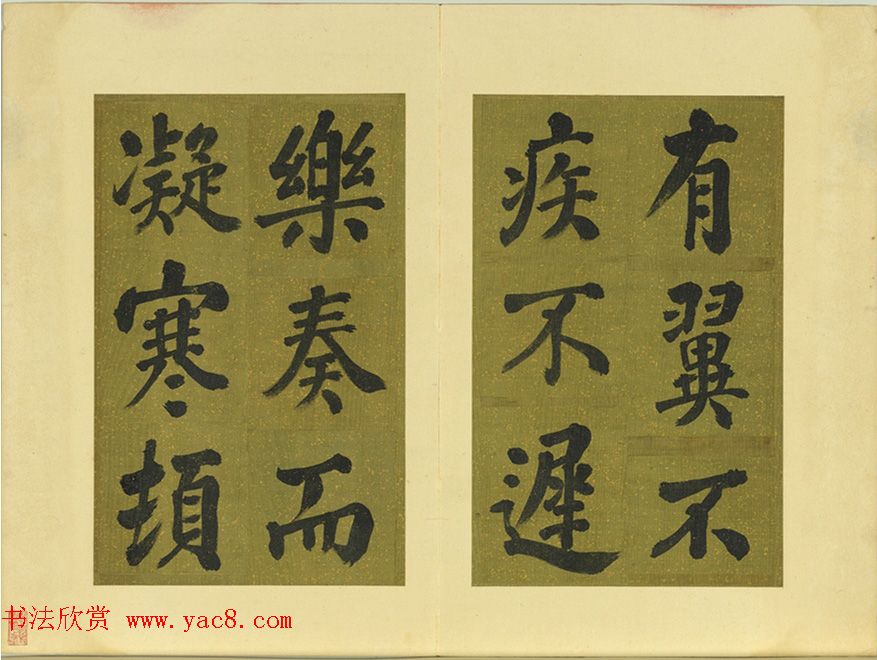 有翼不
疾不遲
樂奏而
凝寒頓
书法欣赏 www.yac8.com